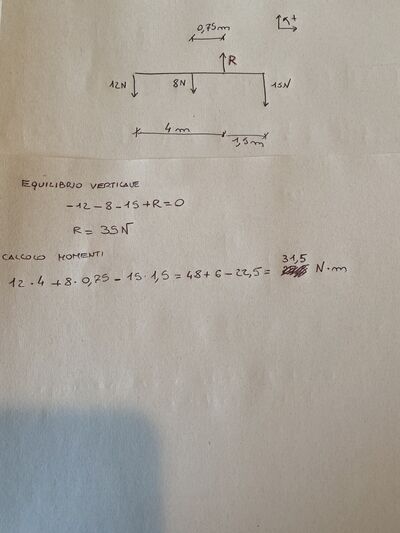 0,75 m
+
R
12N
8N
15N
4 m
1,5m
EQUILIBRIO VERTICALE
-12-8-15+R=0
R = 35N
CALCOLO MOMENTI
31,5
12·4 +8·0,75 - 15·1,5 = 48+6-22,5= N·m